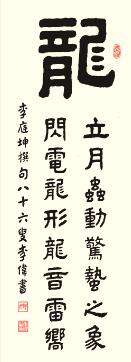 龍
立月蟲動驚蟄之象
閃電龍形龍音雷嚮
李庭坤撰句八十六叟李偉書